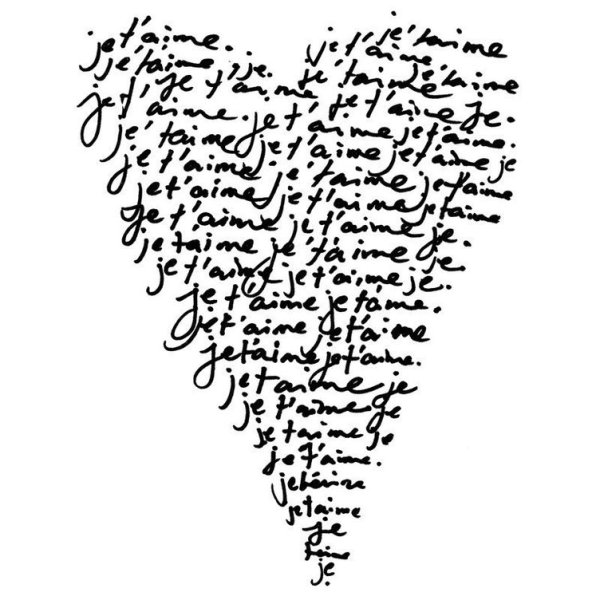 je t'aime. je t'aime je t'aime
je t'aime je. je t'aime je t'aime
je t'aime je t'aime je t'aime je.
je t'aime je t'aime je t'aime.
je t'aime je t'aime je t'aime je
je t'aime je t'aime je t'aime
je t'aime je t'aime je t'aime
je t'aime je t'aime je.
je t'aime je t'aime je.
je t'aime je t'aime je.
je t'aime je t'aime.
je t'aime je t'aime
je t'aime je t'aime.
je t'aime je
je t'aime je
je t'aime je
je t'aime.
je
je t'aime
je
t'aime
je